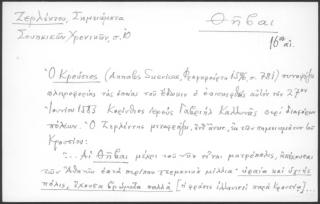 Ζερλέντου, Σημειώματα
Σουηκικῶν Χρονικῶν, σ. 10
Θῆβαι
16ος αἰ.
Ὁ Κρούσιος (Annales Suevicae, Φραγκφούρτη 1596, σ. 781) συνοψίζει
πληροφορίας τὰς ὁποίας τοῦ ἔδωσεν ὁ ἐπισκεφθεὶς αὐτὸν τὴν 27ην
Ἰουνίου 1583 Κορίνθιος ἱερεὺς Γαβριὴλ Καλλωνᾶς περὶ διαφόρων
πόλεων. Ὁ Ζερλέντης μεταφράζει, ἐκ τῶν σημειωμάτων τοῦ
Κρουσίου:
"... Αἱ Θῆβαι μέχρι τοῦ νῦν εἶναι μητρόπολις, ἀπέχουσαι
τῶν Ἀθηνῶν ἑπτὰ περίπου γερμανικὰ μίλλια· ὡραία καὶ ὑγιὴς
πόλις, ἔχουσα βρώματα πολλὰ [ἡ φράσις ἑλληνιστὶ παρὰ Κρουσίῳ]...